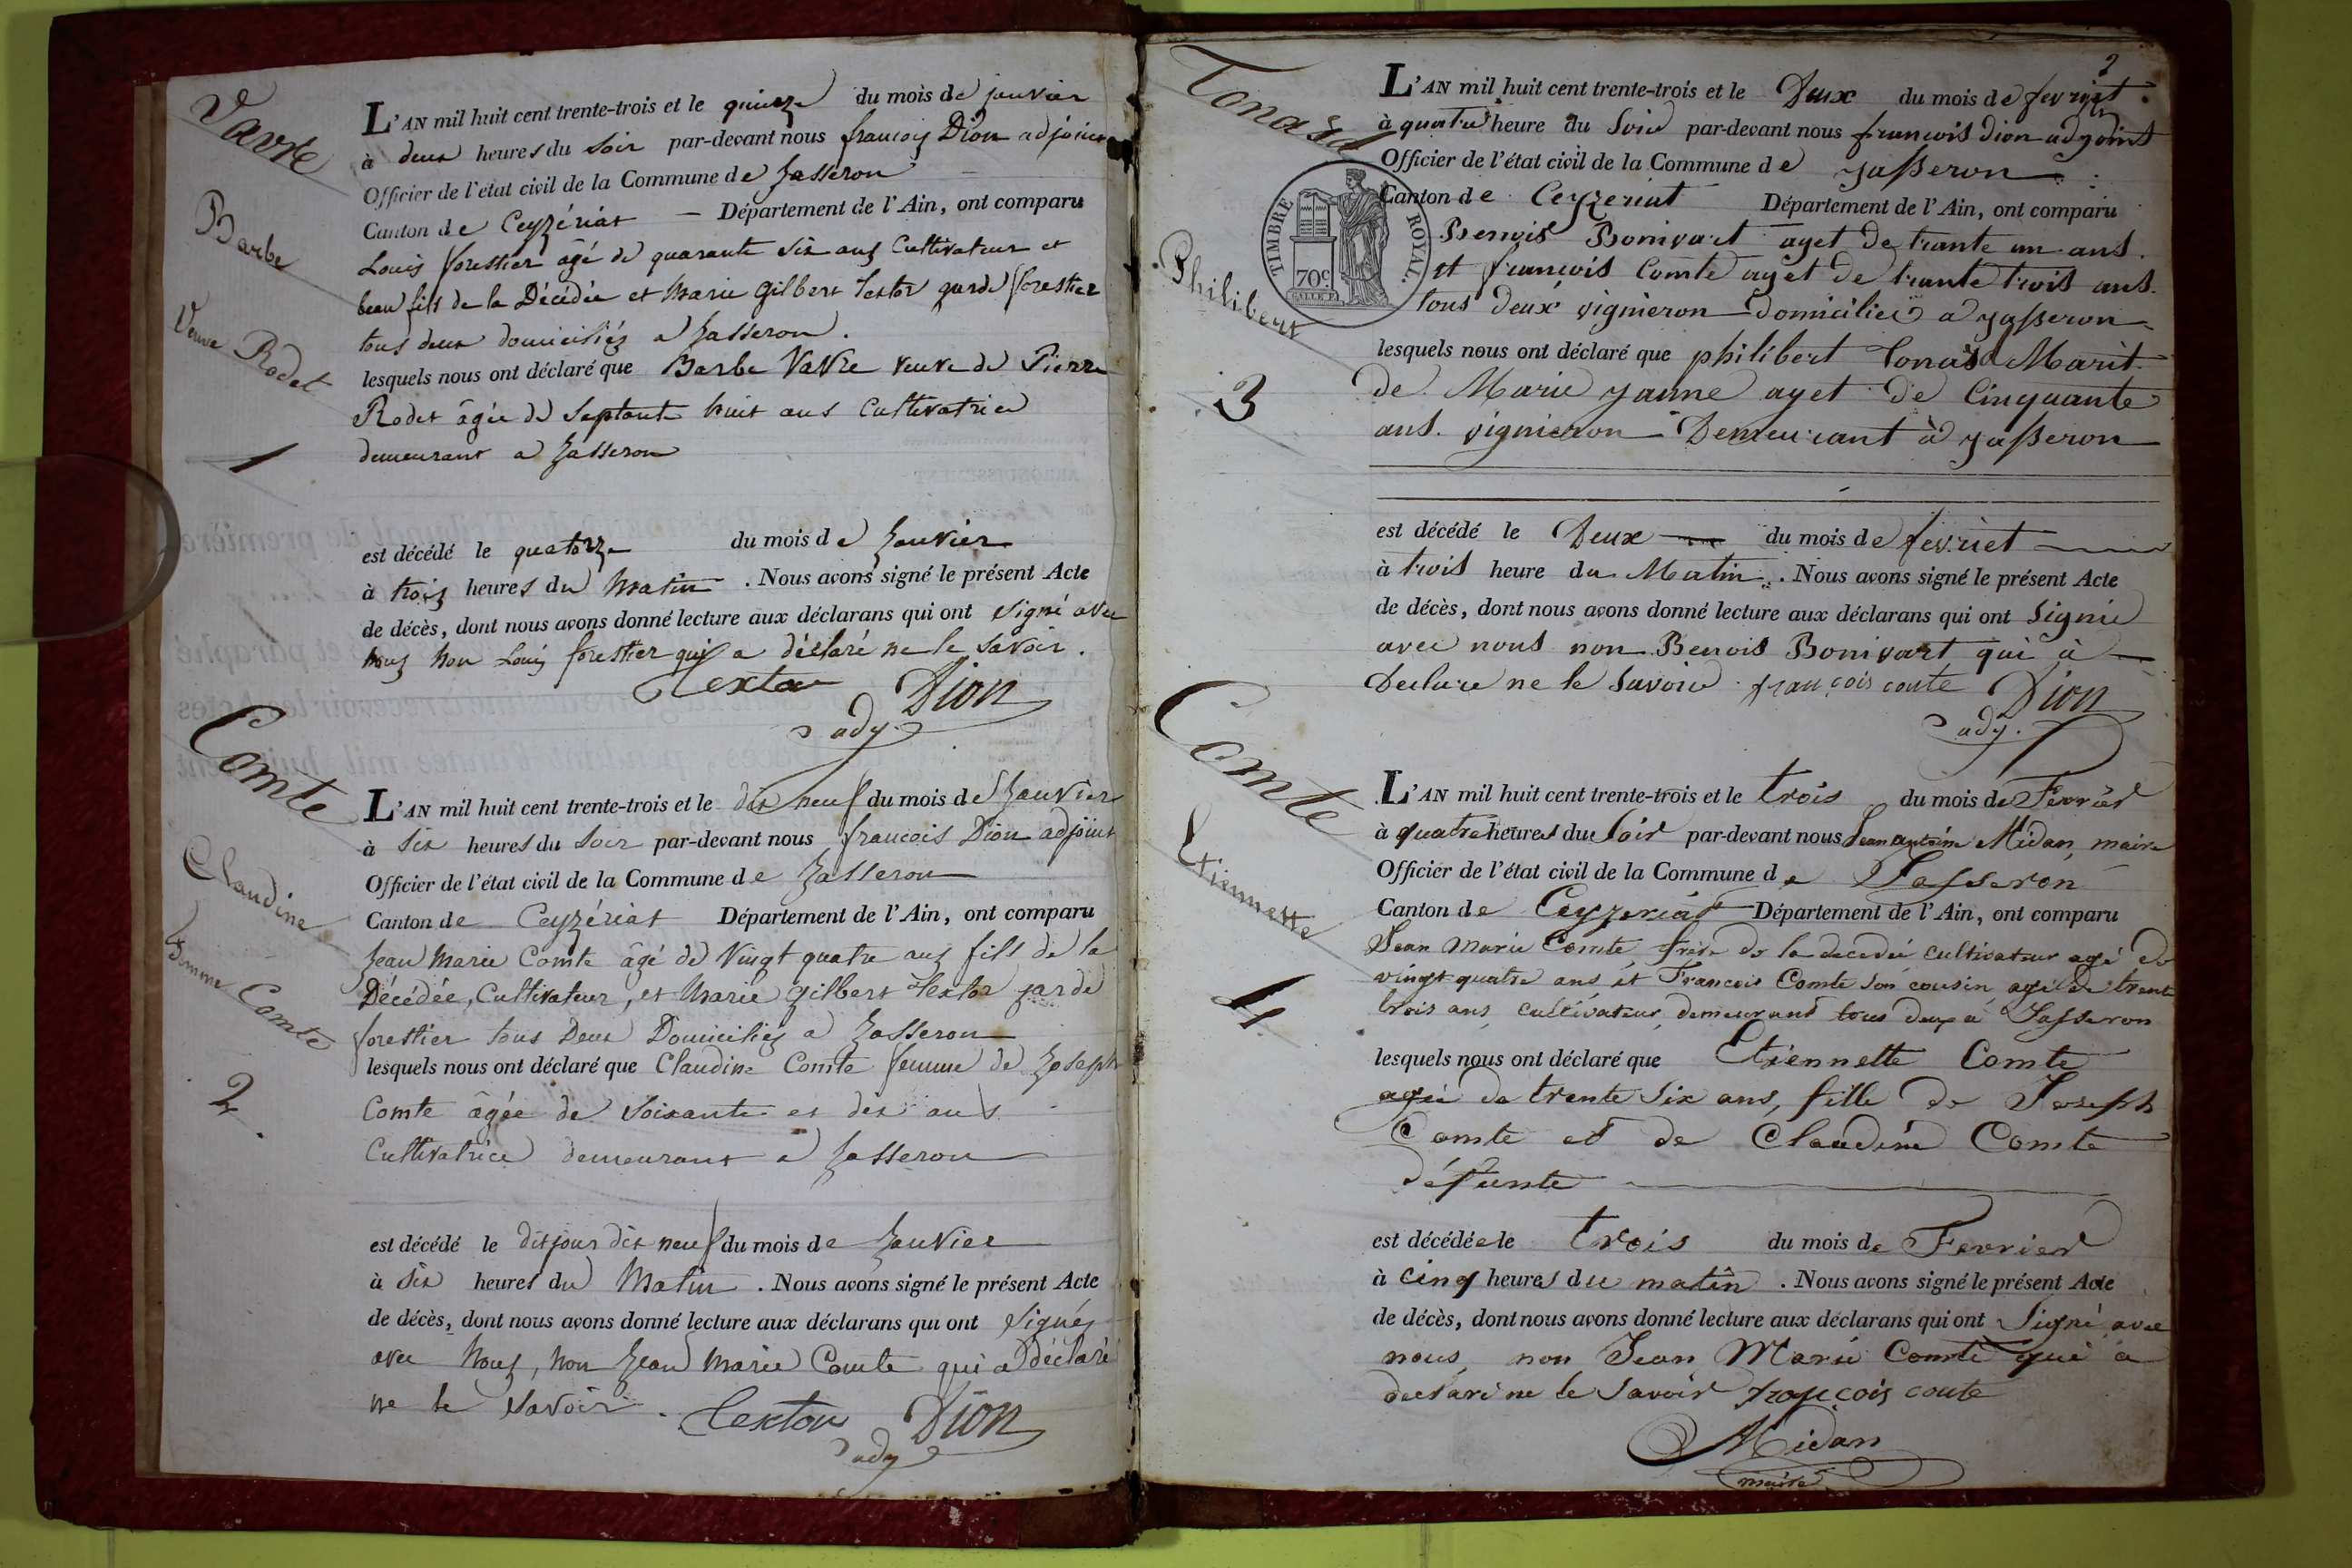 Vavre
Barbe
Veuve Rodet
1
L'AN mil huit cent trente-trois et le quinze du mois de janvier
à deux heures du soir par-devant nous françois Dion adjoint
Officier de l'état civil de la Commune de Jasseron
Canton de Ceyzériat — Département de l'Ain, ont comparu
Louis forestier âgé de quarante six ans Cultivateur et
beau fils de la Décédée et Marie Gilbert Textor garde forestier
tous deux domiciliés a Jasseron.
lesquels nous ont déclaré que Barbe Vavre veuve de Pierre
Rodet âgée de septante huit ans Cultivatrice
demeurant a Jasseron
est décédé le quatorze du mois de Janvier
à trois heures du Matin. Nous avons signé le présent Acte
de décès, dont nous avons donné lecture aux déclarans qui ont signé avec
nous non Louis forestier qui a déclaré ne le savoir.
Textor Dion
adj
Comte
Claudine
femme Comte
2.
L'AN mil huit cent trente-trois et le dix neuf du mois de Janvier
à six heures du soir par-devant nous francois Dion adjoint
Officier de l'état civil de la Commune de Jasseron
Canton de Ceyzériat Département de l'Ain, ont comparu
Jean Marie Comte âgé de Vingt quatre ans fils de la
Décédée, Cultivateur, et Marie Gilbert Textor garde
forestier tous Deux Domiciliés a Jasseron
lesquels nous ont déclaré que Claudine Comte femme de Joseph
Comte âgée de soixante et dix ans
Cultivatrice demeurant a Jasseron
est décédé le dit jour dix neuf du mois de Janvier
à six heures du Matin. Nous avons signé le présent Acte
de décès, dont nous avons donné lecture aux déclarans qui ont signés
avec Nous, non Jean Marie Comte qui a déclaré
ne le savoir. Textor Dion
adj
2
Tonard
Philibert
3
L'AN mil huit cent trente-trois et le Deux du mois de fevriet
à quatre heure du Soird par-devant nous francois dion adjoint
Officier de l'état civil de la Commune de yasseron
Canton de Ceyzeriat Département de l'Ain, ont comparu
TIMBRE ROYAL.
70c.
Benois Bonivart aget de trante un ans.
et francois Comte aget de trante trois ans.
tous deux vignieron domiciliei a yasseron
lesquels nous ont déclaré que philibert Tonard Marit
de Marie yanne aget de Cinquante
ans. vignieron Demeurant à yasseron
est décédé le Deux du mois de fevriet
à trois heure du Matin. Nous avons signé le présent Acte
de décès, dont nous avons donné lecture aux déclarans qui ont signie
avec nous non Benois Bonivart qui à
Declare ne le Savoire françois conte Dion
adj.
Comte
Etiennette
4
L'AN mil huit cent trente-trois et le trois du mois de Fevrier
à quatre heures du Soir par-devant nous Jean antoine Midan, maire
Officier de l'état civil de la Commune de Jasseron
Canton de Ceyzeriat Département de l'Ain, ont comparu
Jean Marie Comte, frère de la decedée cultivateur agé de
vingt quatre ans et François Comte son cousin agé de trente
trois ans, cultivateur, demeurant tous deux à Jasseron
lesquels nous ont déclaré que Etiennette Comte
agée de trente Six ans, fille de Joseph
Comte et de Claudine Comte
défunte
est décédée le trois du mois de Fevrier
à cinq heures du matin. Nous avons signé le présent Acte
de décès, dont nous avons donné lecture aux déclarans qui ont Signé avec
nous, non Jean Marie Comte qui a
declaré ne le Savoir françois conte
Midan
maire